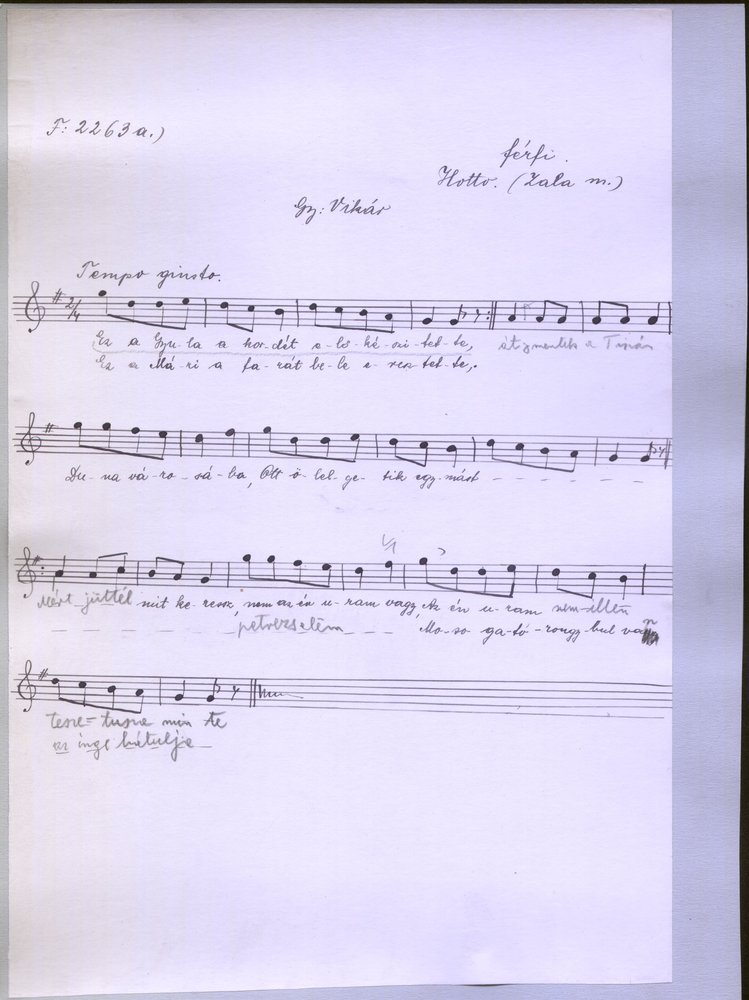 F: 2263 a.)
férfi.
Hotto. (Zala m.)
Gy: Vikár
Tempo giusto.
2/4
Ez a Gyu-la a kor-dét e-lő-ké-szi-tet-te, átzmentek a Tiszán
Ez a Má-ri a fa-rát be-le e-resz-tet-te,.
Du-na vá-ro-sá-ba, Ott ö-lel-ge-tik egy-mást – – – – – –
Mért jüttél mit ke-ressz, nem az én u-ram vagy, Az én u-ram nem ellen
petrezselem – – – , Mo-so-ga-tó-rongy-bul van
tesze=tusza min te
az inge hátulja